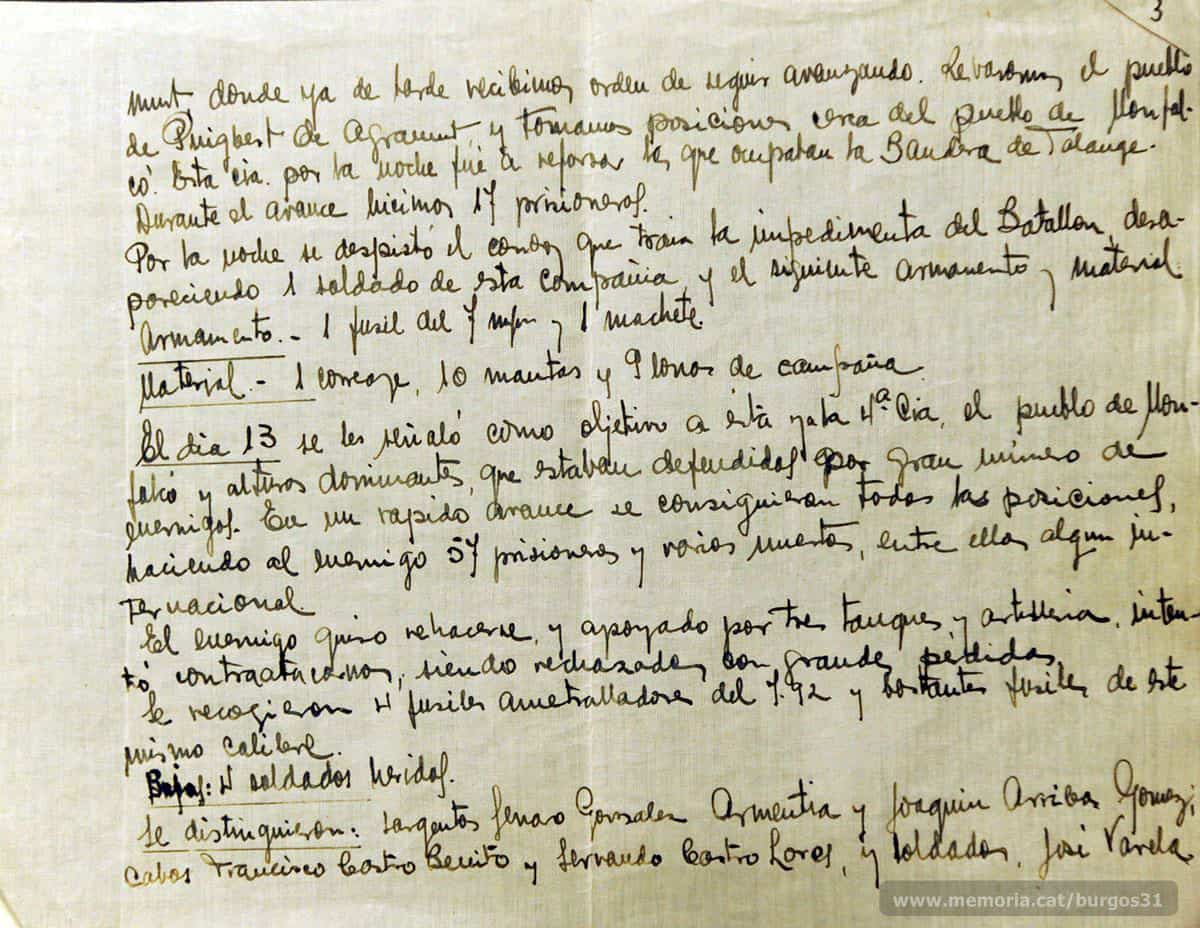 3
munt, donde ya de tarde recibimos orden de seguir avanzando. Rebasamos el pueblo
de Puigbert de Agramunt, y tomamos posiciones cerca del pueblo de Monfal-
có. Esta cia. por la noche fué a reforzar las que ocupaban la Bandera de Falange.
Durante el avance hicimos 17 prisioneros.
Por la noche se despistó el convoy que traia la impedimenta del Batallon, desa-
pareciendo 1 soldado de esta compañia, y el siguiente armamento y material
Armamento.- 1 fusil del 7 m/m y 1 machete.
Material.- 1 correaje, 10 mantas y 9 lonas de campaña.
El dia 13 se les señaló como objetivo a esta y a la 4ª Cia, el pueblo de Mon-
falcó y alturas dominantes, que estaban defendidos por gran número de
enemigos. En un rapido avance se consiguieron todas las posiciones,
haciendo al enemigo 57 prisioneros y varios muertos, entre ellos algun in-
ternacional.
El enemigo quiso rehacerse, y apoyado por tres tanques y artilleria, inten-
tó contraatacarnos, siendo rechazados con grandes perdidas.
Se recogieron 4 fusiles ametralladores del 7.92 y bastantes fusiles de este
mismo calibre.
Bajas: 4 soldados heridos.
Se distinguieron: Sargentos Genaro Gonzalez Armentia y Joaquin Arribas Gomez;
cabos Francisco Castro Benito y Servando Castro Lores, y soldados, José Varela
www.memoria.cat/burgos31